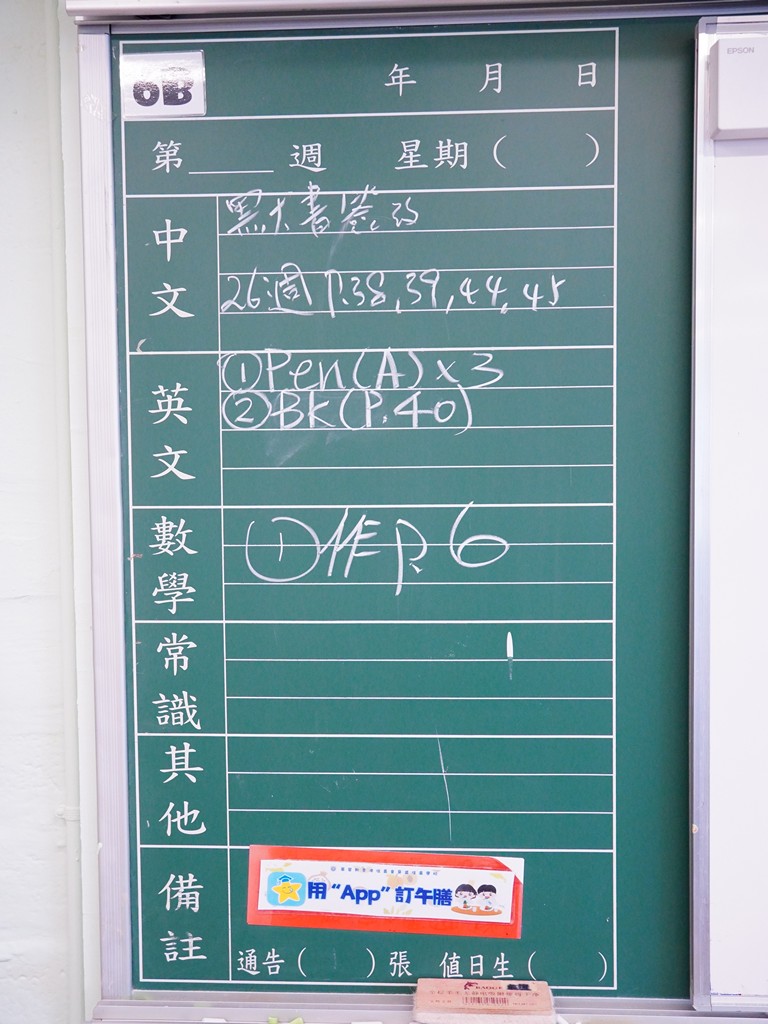 EPSON
6B
年 月 日
第____週 星期( )
中文
默書簽改
26週 P.38,39,44,45
英文
①Pen(A)x3
②BK(P.40)
數學
①作 P.6
常識
其他
備註
用“App”訂午膳
通告( )張 值日生( )